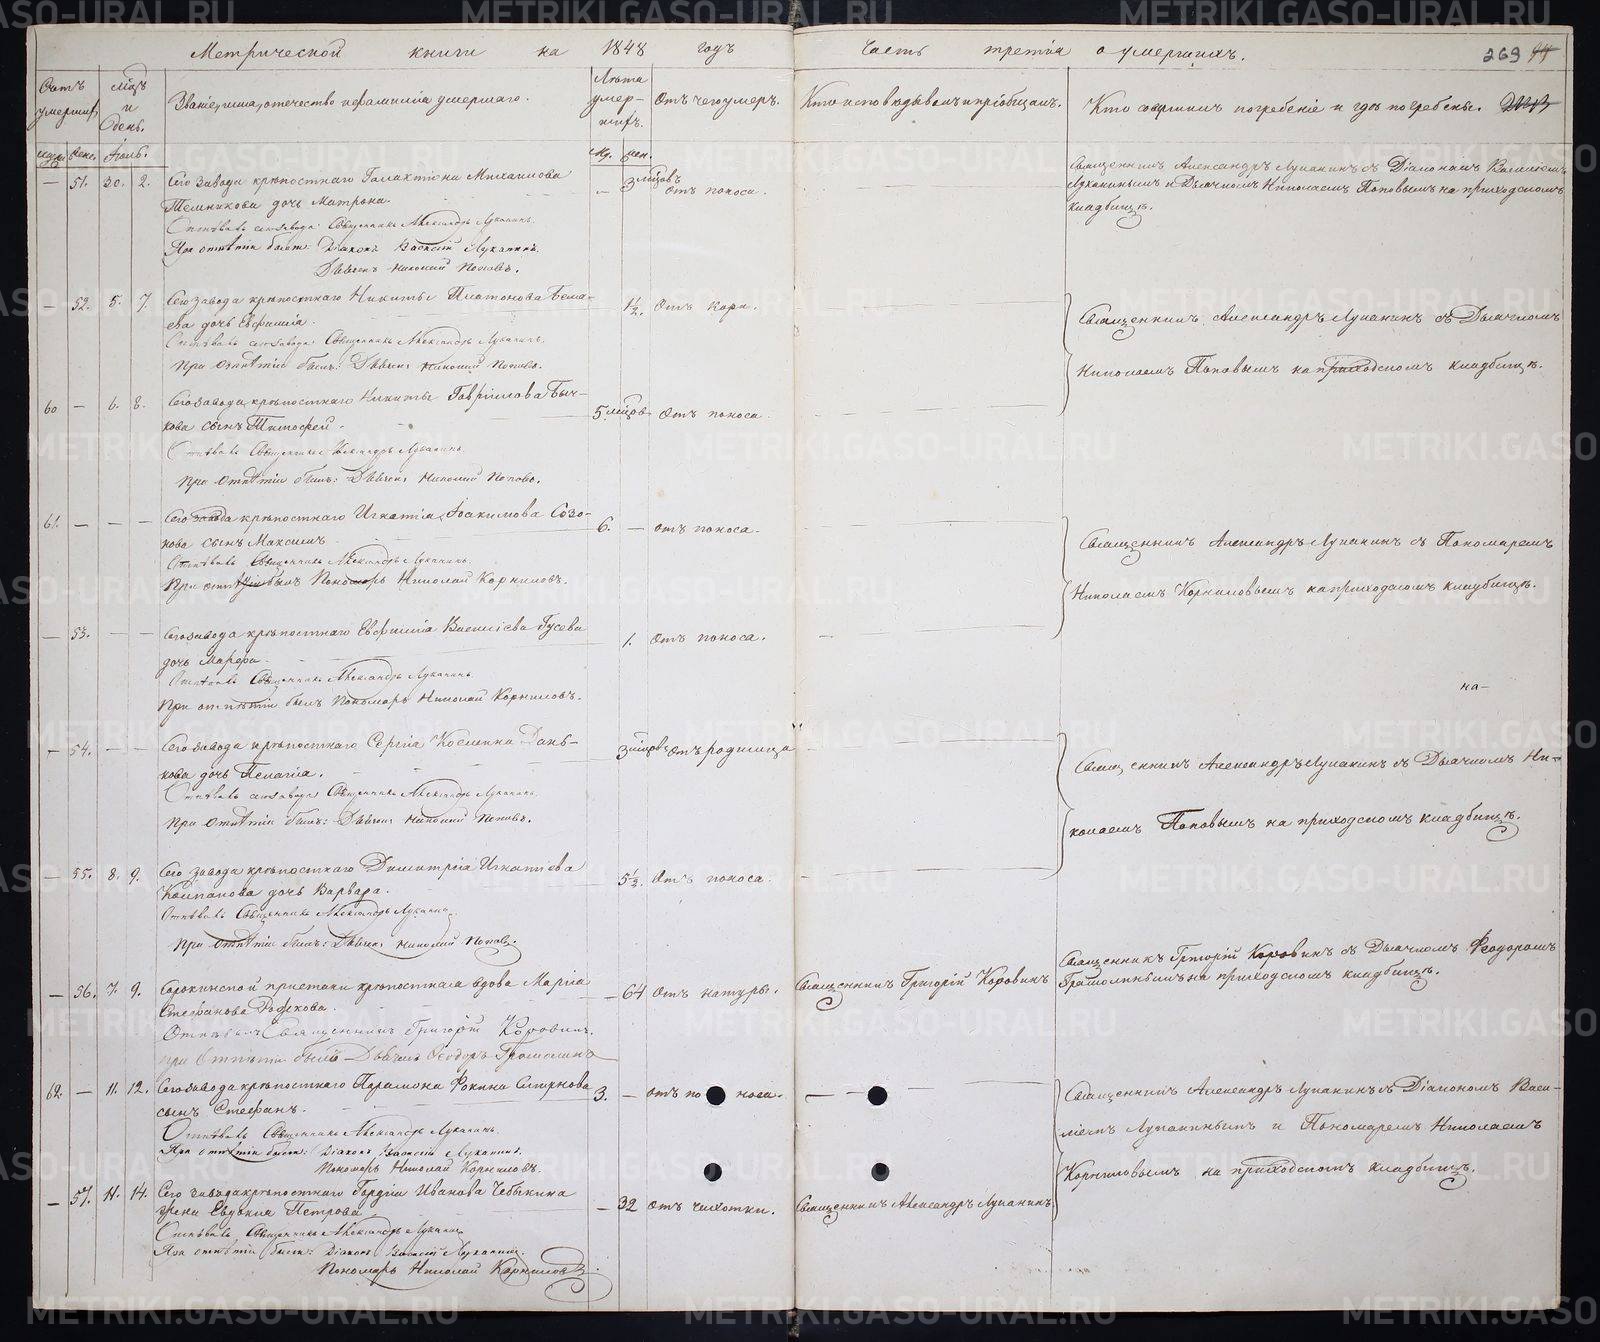 Метрической книги на 1848 годъ
Часть третія о умершихъ.
269
Счетъ умершихъ
мѣсяцъ и день.
Званіе, имя, отечество и фамилія умершаго.
Лѣта умершихъ.
Отъ чего умеръ.
Кто исповѣдывалъ и пріобщалъ.
Кто совершилъ погребеніе и гдѣ погребены.
муж. жен. Іюль. му. жен.
— 51. 30. 2. Сего завода крѣпостнаго Галактіона Михаилова
Темникова дочь Матрона.
— 3 мѣсцовъ отъ поноса.
Отпѣвалъ сего завода Священникъ Александръ Луканинъ.
При отпѣтіи были: Діаконъ Василій Луканинъ.
Дьячекъ Николай Поповъ.
Священникъ Александръ Луканинъ съ Діакономъ Василіемъ
Луканинымъ и Дьячкомъ Николаемъ Поповымъ на приходскомъ
кладбищѣ.
— 52. 5. 7. Сего завода крѣпостнаго Никиты Платонова
дочь Евфимія.
1½. Отъ кори.
Отпѣвалъ сего завода Священникъ Александръ Луканинъ.
При отпѣтіи былъ: Дьячекъ Николай Поповъ.
Священникъ Александръ Луканинъ съ Дьячкомъ
Николаемъ Поповымъ на приходскомъ кладбищѣ.
60 — 6. 8. Сего завода крѣпостнаго Никиты Гаврилова Быч-
кова сынъ Тимофей.
5 мѣсцовъ Отъ поноса.
Отпѣвалъ Священникъ Александръ Луканинъ.
При отпѣтіи былъ: Дьячекъ Николай Поповъ.
61. — — — Сего завода крѣпостнаго Игнатія Іоакимова Созо-
нова сынъ Максимъ.
6. — отъ поноса.
Отпѣвалъ Священникъ Александръ Луканинъ.
При отпѣтіи былъ Пономарь Николай Корниловъ.
Священникъ Александръ Луканинъ съ Пономаремъ
Николаемъ Корниловымъ на приходскомъ кладбищѣ.
— 53. — — Сего завода крѣпостнаго Евфимія Василіева Гусева
дочь Марфа.
1. Отъ поноса.
Отпѣвалъ Священникъ Александръ Луканинъ.
При отпѣтіи былъ Пономарь Николай Корниловъ.
на-
— 54. — — Сего завода крѣпостнаго Сергія Козмина Дань-
кова дочь Пелагія.
3 мѣсцовъ отъ родимца
Отпѣвалъ сего завода Священникъ Александръ Луканинъ.
При отпѣтіи былъ: Дьячекъ Николай Поповъ.
Священникъ Александръ Луканинъ съ Дьячкомъ Ни-
колаемъ Поповымъ на приходскомъ кладбищѣ.
— 55. 8. 9. Сего завода крѣпостнаго Димитрія Игнатіева
Колпакова дочь Варвара.
5½. Отъ поноса.
Отпѣвалъ Священникъ Александръ Луканинъ.
При отпѣтіи былъ: Дьячекъ Николай Поповъ.
— 56. 7. 9. Сорокинской пристани крѣпостная вдова Марія
Стефанова
— 64 отъ натуры.
Священникъ Григорій Коровинъ
Отпѣвалъ Священникъ Григорій Коровинъ.
при отпѣтіи былъ Дьячекъ Феодоръ Грамолинъ
Священникъ Григорій Коровинъ съ Дьячкомъ Феодоромъ
Грамолинымъ на приходскомъ кладбищѣ.
62. — 11. 12. Сего завода крѣпостнаго Парамона Фокина Смирнова
сынъ Стефанъ.
3. — отъ поноса.
Отпѣвалъ Священникъ Александръ Луканинъ.
При отпѣтіи были: Діаконъ Василій Луканинъ.
Пономарь Николай Корниловъ.
Священникъ Александръ Луканинъ съ Діакономъ Васи-
ліемъ Луканинымъ и Пономаремъ Николаемъ
Корниловымъ на приходскомъ кладбищѣ.
— 57. 11. 14. Сего завода крѣпостнаго Гордія Иванова Чебыкина
жена Евдокія Петрова
— 32 отъ чихотки.
Священникъ Александръ Луканинъ.
Отпѣвалъ Священникъ Александръ Луканинъ
При отпѣтіи были: Діаконъ Василій Луканинъ.
Пономарь Николай Корниловъ.
METRIKI.GASO-URAL.RU